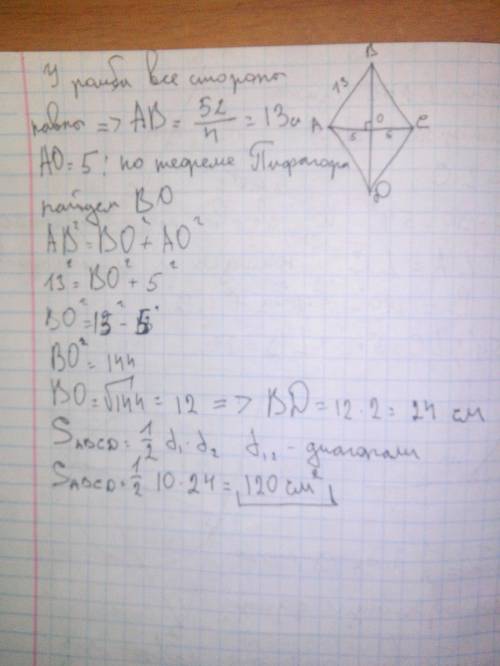 У ромба все стороны
равны => AB = 52/4 = 13 см
AO = 5; по теореме Пифагора
найдем BO
AB² = BO² + AO²
13² = BO² + 5²
BO² = 13² - 5²
BO² = 144
BO = √144 = 12 => BD = 12·2 = 24 см
S ABCD = 1/2 d₁·d₂ d₁,₂ - диагонали
S ABCD = 1/2 10·24 = 120 см²
B
13
A
O
C
5
5
D